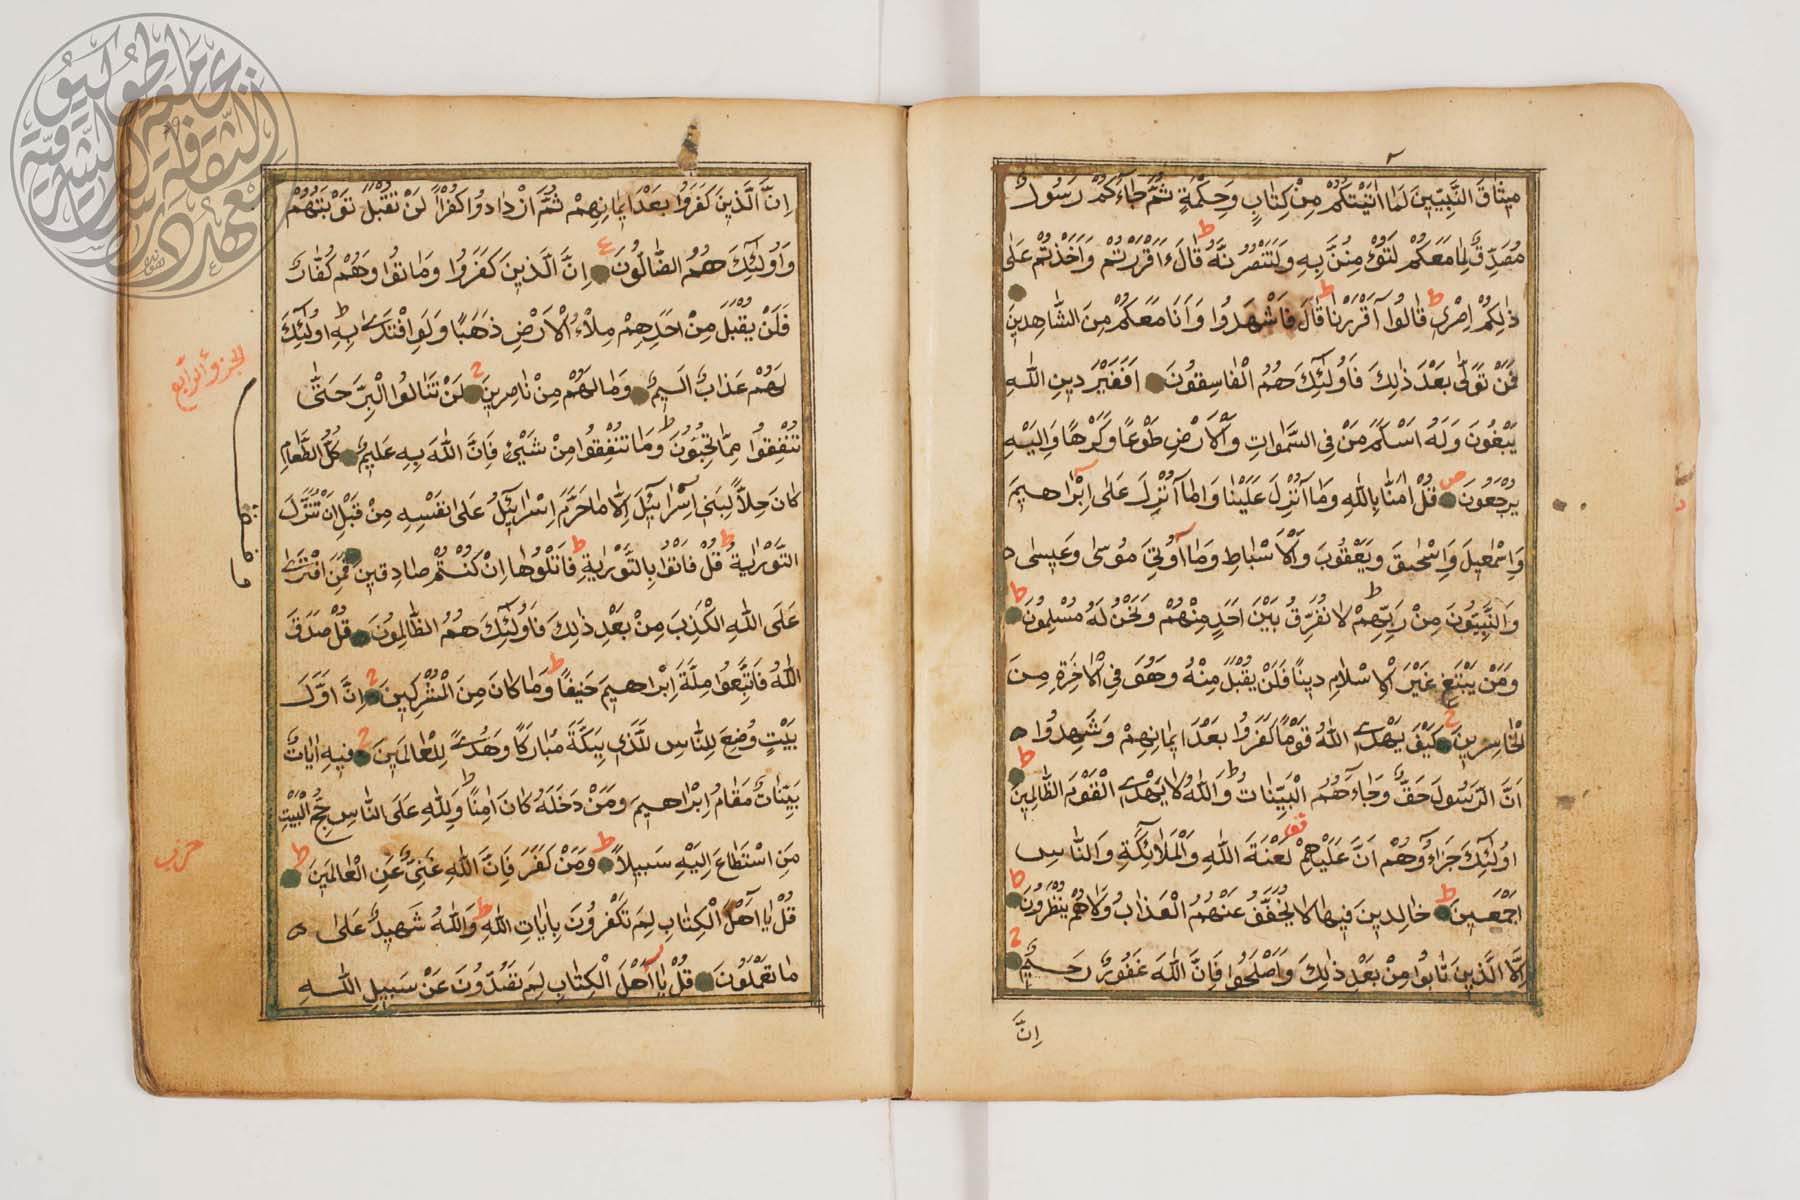 مِيثَاقَ النَّبِيّينَ لَمَا اٰتَيْتُكُمْ مِنْ كِتَابٍ وَحِكْمَةٍ ثُمَّ جَاءَكُمْ رَسُولٌ
مُصَدِّقٌ لِمَا مَعَكُمْ لَتُؤْمِنُنَّ بِهِ وَلَتَنْصُرُنَّهُ ط قَالَ ءَاَقْرَرْتُمْ وَاَخَذْتُمْ عَلٰى
ذٰلِكُمْ اِصْرٖى ط قَالُوا اَقْرَرْنَا ط قَالَ فَاشْهَدُوا وَاَنَا مَعَكُمْ مِنَ الشَّاهِدِينَ
فَمَنْ تَوَلّٰى بَعْدَ ذٰلِكَ فَاُولٰئِكَ هُمُ الْفَاسِقُونَ اَفَغَيْرَ دِينِ اللّٰهِ
يَبْغُونَ وَلَهُ اَسْلَمَ مَنْ فِى السَّمٰوَاتِ وَالْاَرْضِ طَوْعًا وَكَرْهًا وَاِلَيْهِ
يُرْجَعُونَ ص قُلْ اٰمَنَّا بِاللّٰهِ وَمَا اُنْزِلَ عَلَيْنَا وَمَا اُنْزِلَ عَلٰى اِبْرَاهِيمَ
وَاِسْمٰعِيلَ وَاِسْحٰقَ وَيَعْقُوبَ وَالْاَسْبَاطِ وَمَا اُوتِىَ مُوسٰى وَعِيسٰى
وَالنَّبِيُّونَ مِنْ رَبِّهِمْ ط لَا نُفَرِّقُ بَيْنَ اَحَدٍ مِنْهُمْ وَنَحْنُ لَهُ مُسْلِمُونَ ط
وَمَنْ يَبْتَغِ غَيْرَ الْاِسْلَامِ دِينًا فَلَنْ يُقْبَلَ مِنْهُ وَهُوَ فِى الْاٰخِرَةِ مِنَ
الْخَاسِرِينَ كَيْفَ يَهْدِى اللّٰهُ قَوْمًا كَفَرُوا بَعْدَ اِيمَانِهِمْ وَشَهِدُوا
اَنَّ الرَّسُولَ حَقٌّ وَجَاءَهُمُ الْبَيِّنَاتُ ط وَاللّٰهُ لَا يَهْدِى الْقَوْمَ الظَّالِمِينَ ط
اُولٰئِكَ جَزَاؤُهُمْ اَنَّ عَلَيْهِمْ لَعْنَةَ اللّٰهِ وَالْمَلٰئِكَةِ وَالنَّاسِ
اَجْمَعِينَ ط خَالِدِينَ فِيهَا لَا يُخَفَّفُ عَنْهُمُ الْعَذَابُ وَلَا هُمْ يُنْظَرُونَ ط
اِلَّا الَّذِينَ تَابُوا مِنْ بَعْدِ ذٰلِكَ وَاَصْلَحُوا فَاِنَّ اللّٰهَ غَفُورٌ رَحِيمٌ
اِنَّ
اِنَّ الَّذِينَ كَفَرُوا بَعْدَ اِيمَانِهِمْ ثُمَّ ازْدَادُوا كُفْرًا لَنْ تُقْبَلَ تَوْبَتُهُمْ
وَاُولٰئِكَ هُمُ الضَّالُّونَ اِنَّ الَّذِينَ كَفَرُوا وَمَاتُوا وَهُمْ كُفَّارٌ
فَلَنْ يُقْبَلَ مِنْ اَحَدِهِمْ مِلْءُ الْاَرْضِ ذَهَبًا وَلَوِ افْتَدٰى بِهِ ط اُولٰئِكَ
لَهُمْ عَذَابٌ اَلِيمٌ وَمَا لَهُمْ مِنْ نَاصِرِينَ لَنْ تَنَالُوا الْبِرَّ حَتّٰى
تُنْفِقُوا مِمَّا تُحِبُّونَ ط وَمَا تُنْفِقُوا مِنْ شَىْءٍ فَاِنَّ اللّٰهَ بِهِ عَلِيمٌ كُلُّ الطَّعَامِ
كَانَ حِلًّا لِبَنِى اِسْرَائِيلَ اِلَّا مَا حَرَّمَ اِسْرَائِيلُ عَلٰى نَفْسِهِ مِنْ قَبْلِ اَنْ تُنَزَّلَ
التَّوْرٰيةُ ط قُلْ فَاْتُوا بِالتَّوْرٰيةِ ط فَاتْلُوهَا اِنْ كُنْتُمْ صَادِقِينَ فَمَنِ افْتَرٰى
عَلَى اللّٰهِ الْكَذِبَ مِنْ بَعْدِ ذٰلِكَ فَاُولٰئِكَ هُمُ الظَّالِمُونَ قُلْ صَدَقَ
اللّٰهُ فَاتَّبِعُوا مِلَّةَ اِبْرَاهِيمَ حَنِيفًا ط وَمَا كَانَ مِنَ الْمُشْرِكِينَ اِنَّ اَوَّلَ
بَيْتٍ وُضِعَ لِلنَّاسِ لَلَّذِى بِبَكَّةَ مُبَارَكًا وَهُدًى لِلْعَالَمِينَ فِيهِ اٰيَاتٌ
بَيِّنَاتٌ مَقَامُ اِبْرَاهِيمَ وَمَنْ دَخَلَهُ كَانَ اٰمِنًا ط وَلِلّٰهِ عَلَى النَّاسِ حِجُّ الْبَيْتِ
مَنِ اسْتَطَاعَ اِلَيْهِ سَبِيلًا ط وَمَنْ كَفَرَ فَاِنَّ اللّٰهَ غَنِىٌّ عَنِ الْعَالَمِينَ ط
قُلْ يَا اَهْلَ الْكِتَابِ لِمَ تَكْفُرُونَ بِاٰيَاتِ اللّٰهِ وَاللّٰهُ شَهِيدٌ عَلٰى
مَا تَعْمَلُونَ قُلْ يَا اَهْلَ الْكِتَابِ لِمَ تَصُدُّونَ عَنْ سَبِيلِ اللّٰهِ
الجزؤ الرابع
حزب